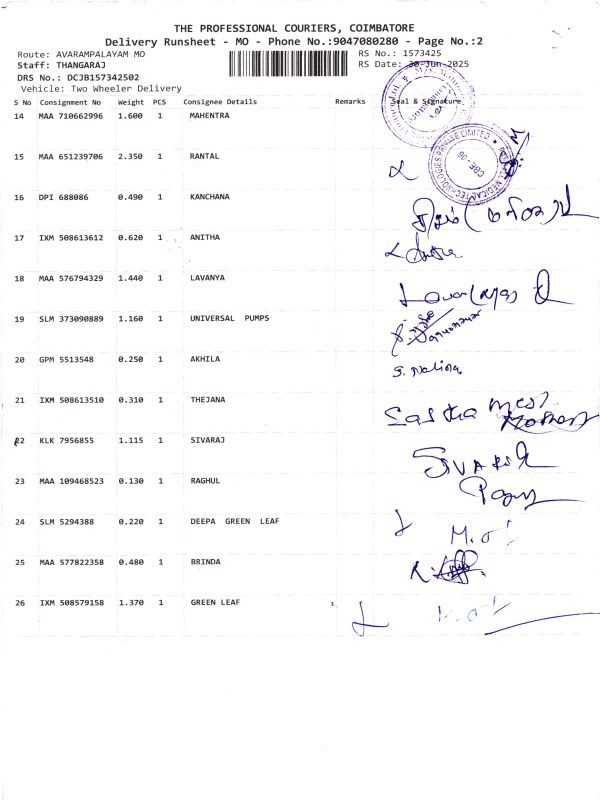 THE PROFESSIONAL COURIERS, COIMBATORE
Delivery Runsheet - MO - Phone No.:9047080280 - Page No.:2
Route: AVARAMPALAYAM MO RS No.: 1573425
Staff: THANGARAJ RS Date: 30-Jun-2025
DRS No.: DCJB157342502
Vehicle: Two Wheeler Delivery
S No Consignment No Weight PCS Consignee Details Remarks Seal & Signature
14 MAA 710662996 1.600 1 MAHENTRA
PRIVATE LIMITED
CBE - 06
15 MAA 651239706 2.350 1 RANTAL
16 DPI 688086 0.490 1 KANCHANA
17 IXM 508613612 0.620 1 ANITHA
18 MAA 576794329 1.440 1 LAVANYA
19 SLM 373090889 1.160 1 UNIVERSAL PUMPS
20 GPM 5513548 0.250 1 AKHILA
21 IXM 508613510 0.310 1 THEJANA
22 KLK 7956855 1.115 1 SIVARAJ
23 MAA 109468523 0.130 1 RAGHUL
24 SLM 5294388 0.220 1 DEEPA GREEN LEAF
25 MAA 577822358 0.480 1 BRINDA
26 IXM 508579158 1.370 1 GREEN LEAF